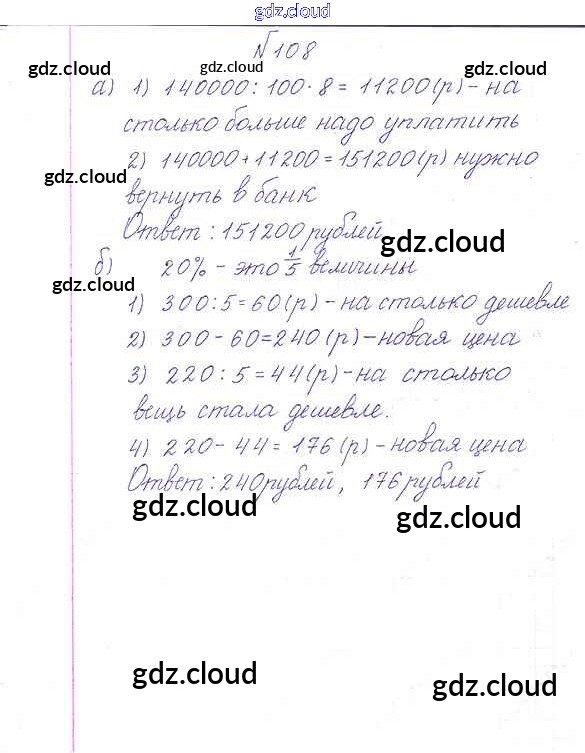 gdz.cloud
№108
gdz.cloud gdz.cloud gdz.cloud
а) 1) 140000:100·8 = 11200(р)-на
столько больше надо уплатить
2) 140000+11200=151200(р) нужно
gdz.cloud
вернуть в банк
Ответ: 151200 рублей
gdz.cloud
б) 20% - это 1/5 величины
gdz.cloud
1) 300:5=60(р)-на столько дешевле
2) 300-60=240(р)-новая цена
3) 220:5=44(р)-на столько
вещь стала дешевле.
4) 220-44=176(р)-новая цена
Ответ: 240рублей, 176рублей
gdz.cloud
gdz.cloud
gdz.cloud
gdz.cloud